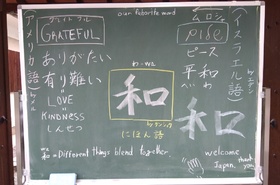 our favorite word
アメリカ語
by メル
グレイトフル
GRATEFUL
ありがたい
有り難い
LOVE
KINDNESS
しんせつ
わ・wa
和
by ケンジ
にほん語
wa
和 = Different things blend together
イスラエル語
ピース
平和
へいわ
和
welcome
Japan.
thank you